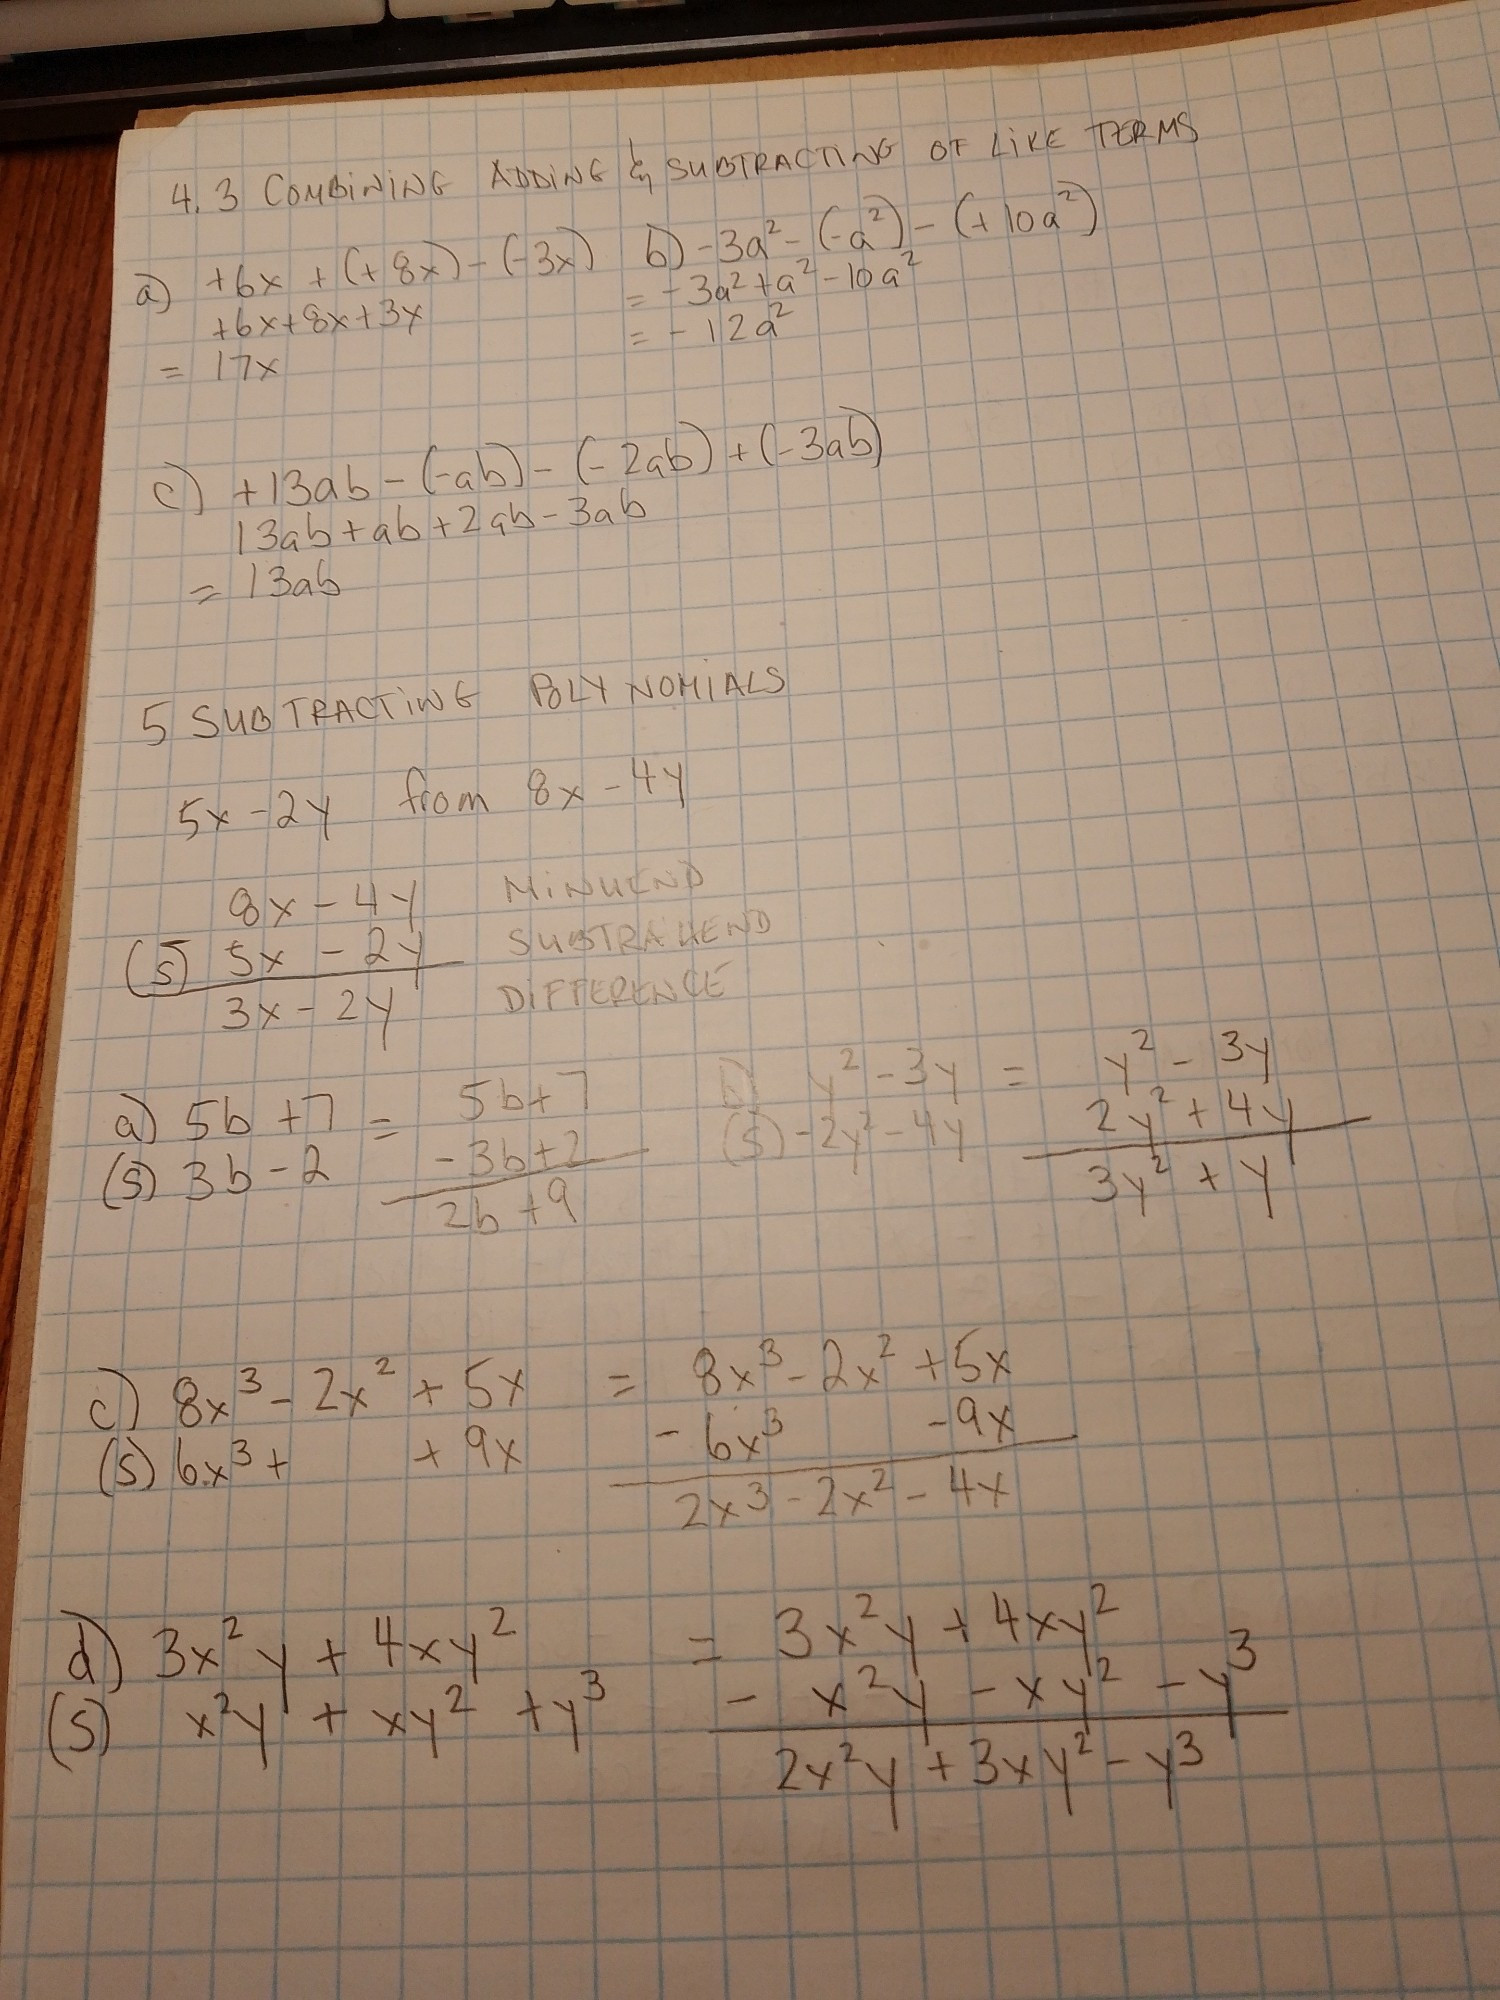 4.3 COMBINING ADDING & SUBTRACTING OF LIKE TERMS
a) +6x + (+8x) - (-3x)
+6x+8x+3x
= 17x
b) -3a² - (-a²) - (+10a²)
= -3a²+a²-10a²
= -12a²
c) +13ab - (-ab) - (-2ab) + (-3ab)
13ab+ab+2ab-3ab
= 13ab
5 SUBTRACTING POLYNOMIALS
5x-2y from 8x-4y
8x-4y MINUEND
(S) 5x-2y SUBTRAHEND
3x-2y DIFFERENCE
a) 5b+7 = 5b+7
(S) 3b-2 -3b+2
2b+9
b) y²-3y = y²-3y
(S) -2y²-4y 2y²+4y
3y²+y
c) 8x³-2x²+5x = 8x³-2x²+5x
(S) 6x³+ +9x -6x³ -9x
2x³-2x²-4x
d) 3x²y+4xy² = 3x²y+4xy²
(S) x²y+xy²+y³ -x²y-xy²-y³
2x²y+3xy²-y³